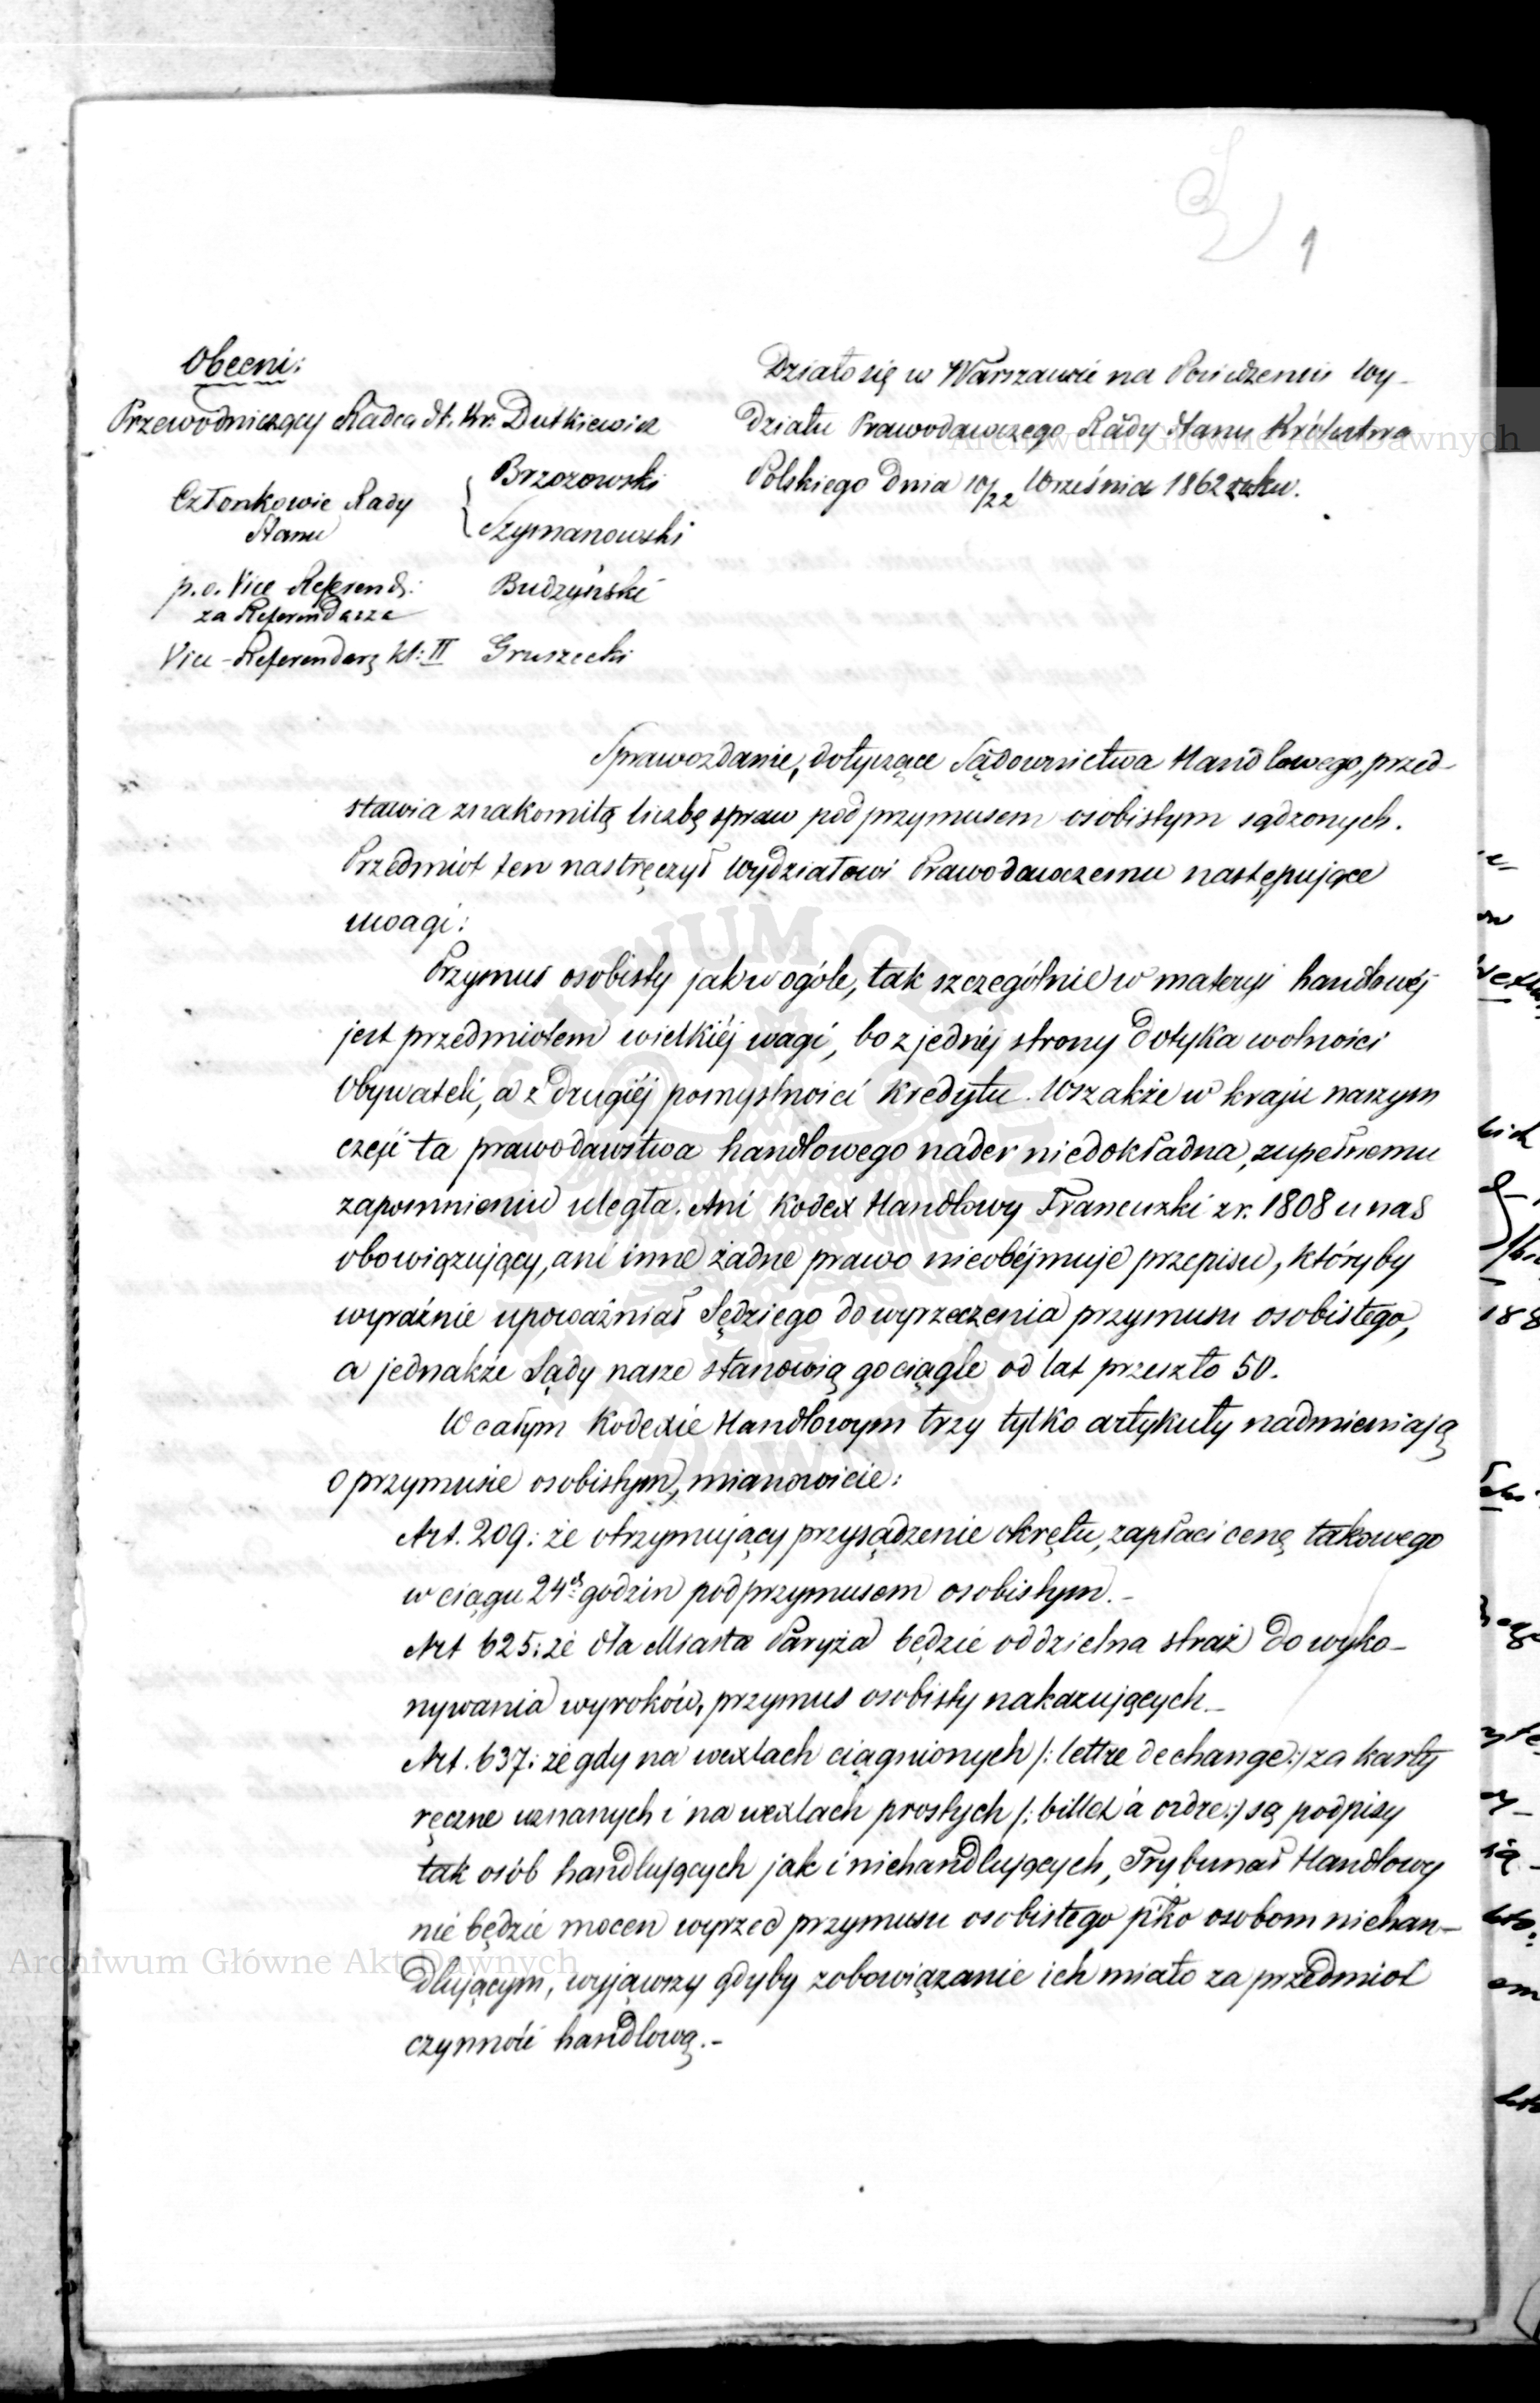 1
Obecni:
Przewodniczący Radca St. Kr. Dutkiewicz
Członkowie Rady
Stanu
Brzozowski
Szymanowski
p.o. Vice Referend:
za Referendarza
Budzyński
Vice-Referendarz kl: II Gruszecki
Działo się w Warszawie na Posiedzeniu Wy-
działu Prawodawczego Rady Stanu Królestwa
Polskiego dnia 10/22 Września 1862 roku.
Sprawozdanie, dotyczące Sądownictwa Handlowego, przed-
stawia znakomitą liczbę spraw pod przymusem osobistym sądzonych.
Przedmiot ten nastręczył Wydziałowi Prawodawczemu następujące
uwagi:
Przymus osobisty jak w ogóle, tak szczególnie w materyi handlowéj
jest przedmiotem wielkiéj wagi, bo z jednéj strony dotyka wolności
Obywateli, a z drugiéj pomyślności kredytu. Wszakże w kraju naszym
część ta prawodawstwa handlowego nader niedokładna, zupełnemu
zapomnieniu uległa. Ani Kodex Handlowy Francuzki z r. 1808 u nas
obowiązujący, ani inne żadne prawo nieobéjmuje przepisu, któryby
wyraźnie upoważniał Sędziego do wyrzeczenia przymusu osobistego,
a jednakże Sądy nasze stanowią go ciągle od lat przeszło 50.
W całym Kodexie Handlowym trzy tylko artykuły nadmieniają
o przymusie osobistym, mianowicie:
Art. 209: że otrzymujący przysądzenie okrętu, zapłaci cenę takowego
w ciągu 24ch godzin pod przymusem osobistym.-
Art 625: że dla Miasta Paryża będzie oddzielna straż do wyko-
nywania wyroków, przymus osobisty nakazujących.-
Art. 637: że gdy na wexlach ciągnionych /: lettre de change :/ za karty
ręczne uznanych i na wexlach prostych /: billet à ordre :/ są podpisy
tak osób handlujących jak i niehandlujących, Trybunał Handlowy
nie będzie mocen wyrzec przymusu osobistego p'ko osobom niehan-
dlującym, wyjąwszy gdyby zobowiązanie ich miało za przedmiot
czynność handlową.-
Archiwum Główne Akt Dawnych
Archiwum Główne Akt Dawnych